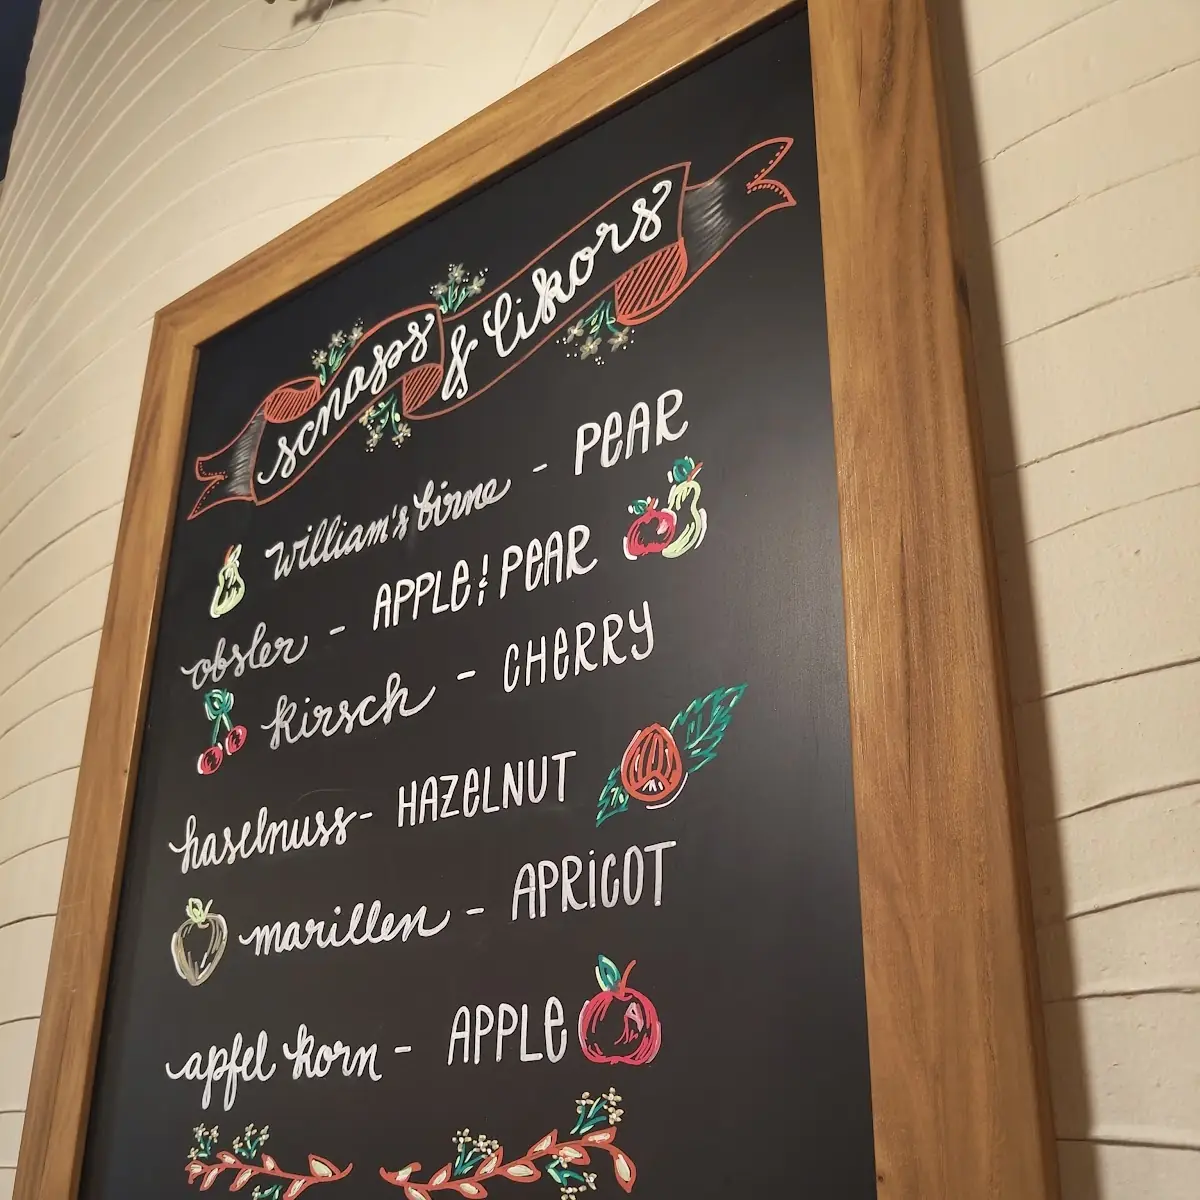 scnapps & likors
william's birne - PEAR
obsler - APPLE & PEAR
kirsch - CHERRY
haselnuss - HAZELNUT
marillen - APRICOT
apfel korn - APPLE